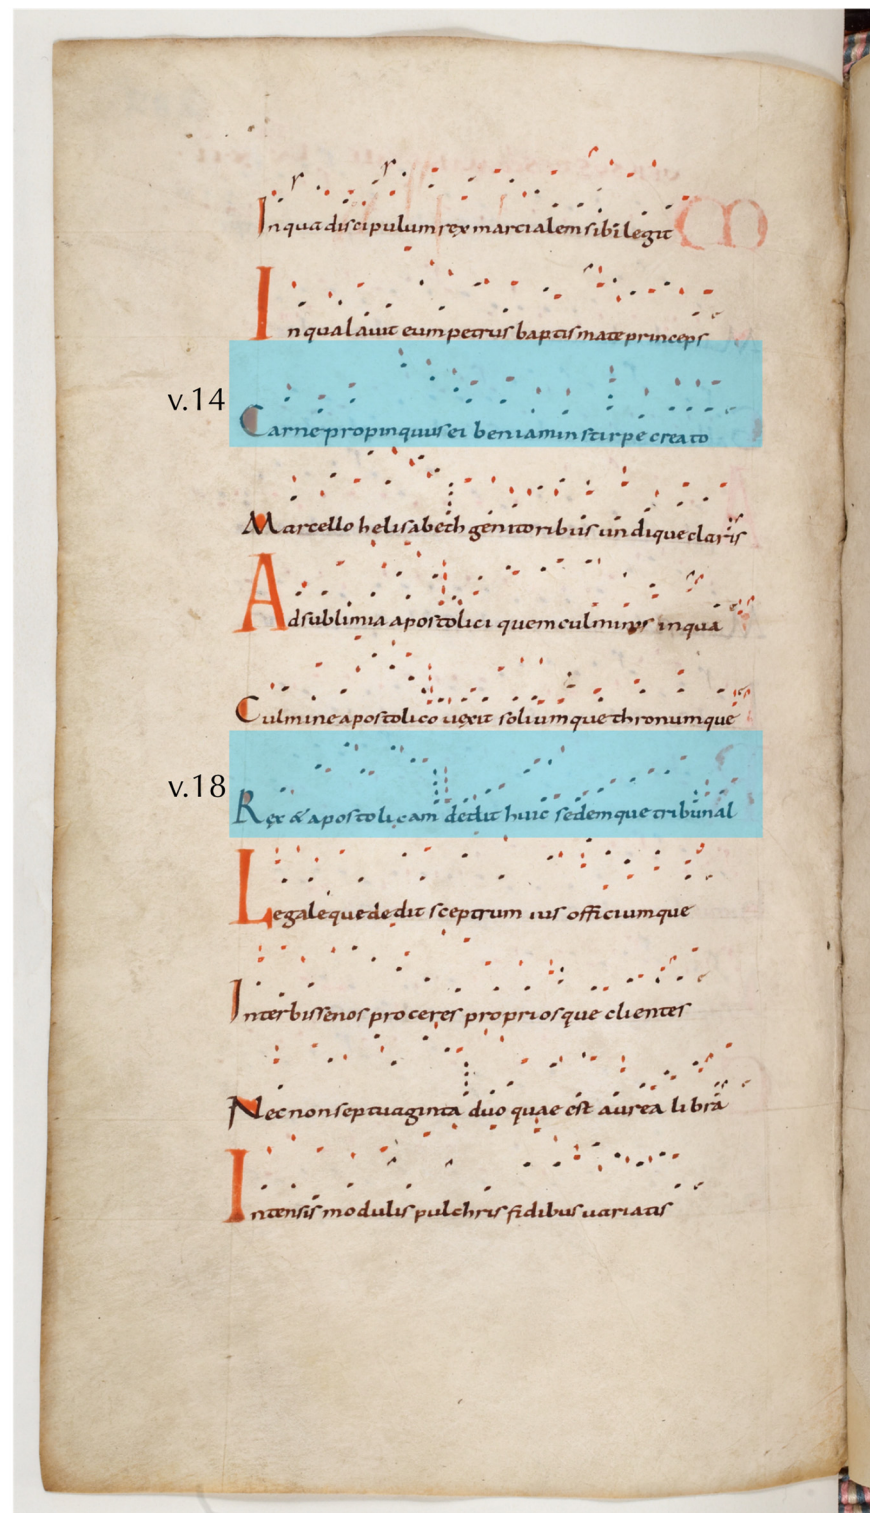 In qua discipulum rex martialem sibi legit
In qua lavit eum petrus baptismate princeps
v.14
Carne propinquus ei beniamin stirpe creato
Marcello helisabeth genitoribus undique claris
Ad sublimia apostolici quem culminis in qua
Culmine apostolico uexit soliumque thronumque
v.18
Rex & apostolicam dedit huic sedemque tribunal
Legaleque dedit sceptrum ius officiumque
Inter bissenos proceres propriosque clientes
Nec non septuaginta duo quae est aurea libra
Intensis modulis pulchris fidibus uariatis